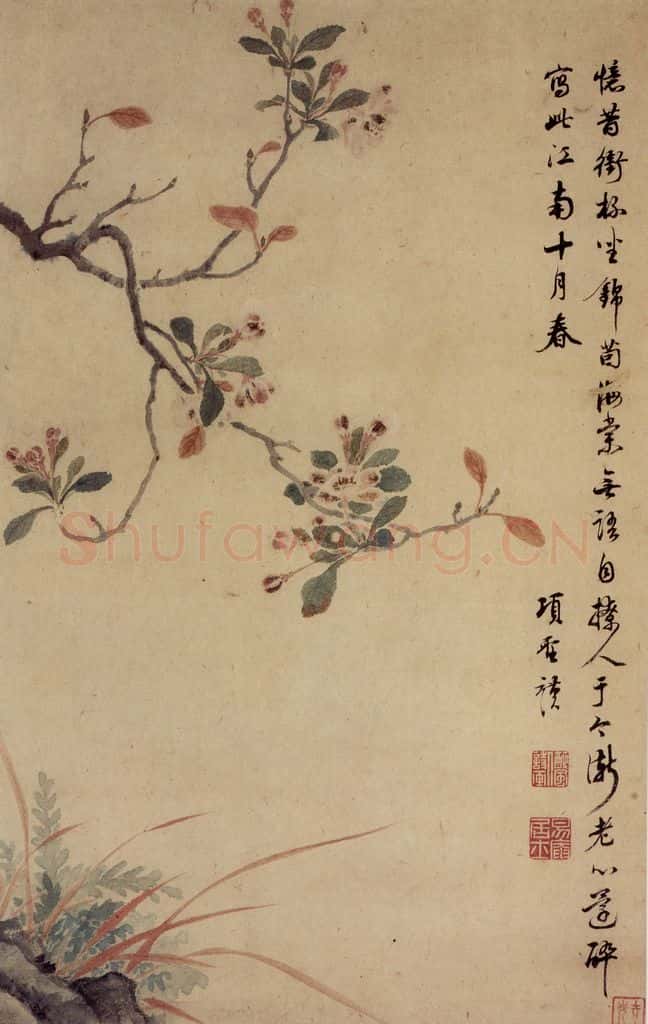 憶昔銜杯坐錦茵海棠無語自撩人于今漸老心還醉
寫此江南十月春
項聖謨
Shufawang.CN